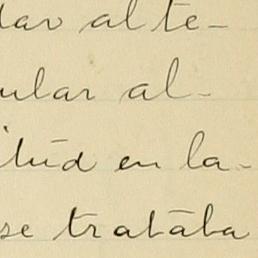 dar al te-
ular al-
itud en la-
se trataba